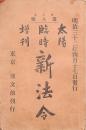 明治三十二年四月二十五日發行
太陽
臨時
增刊
新法令
東京 博文館發行